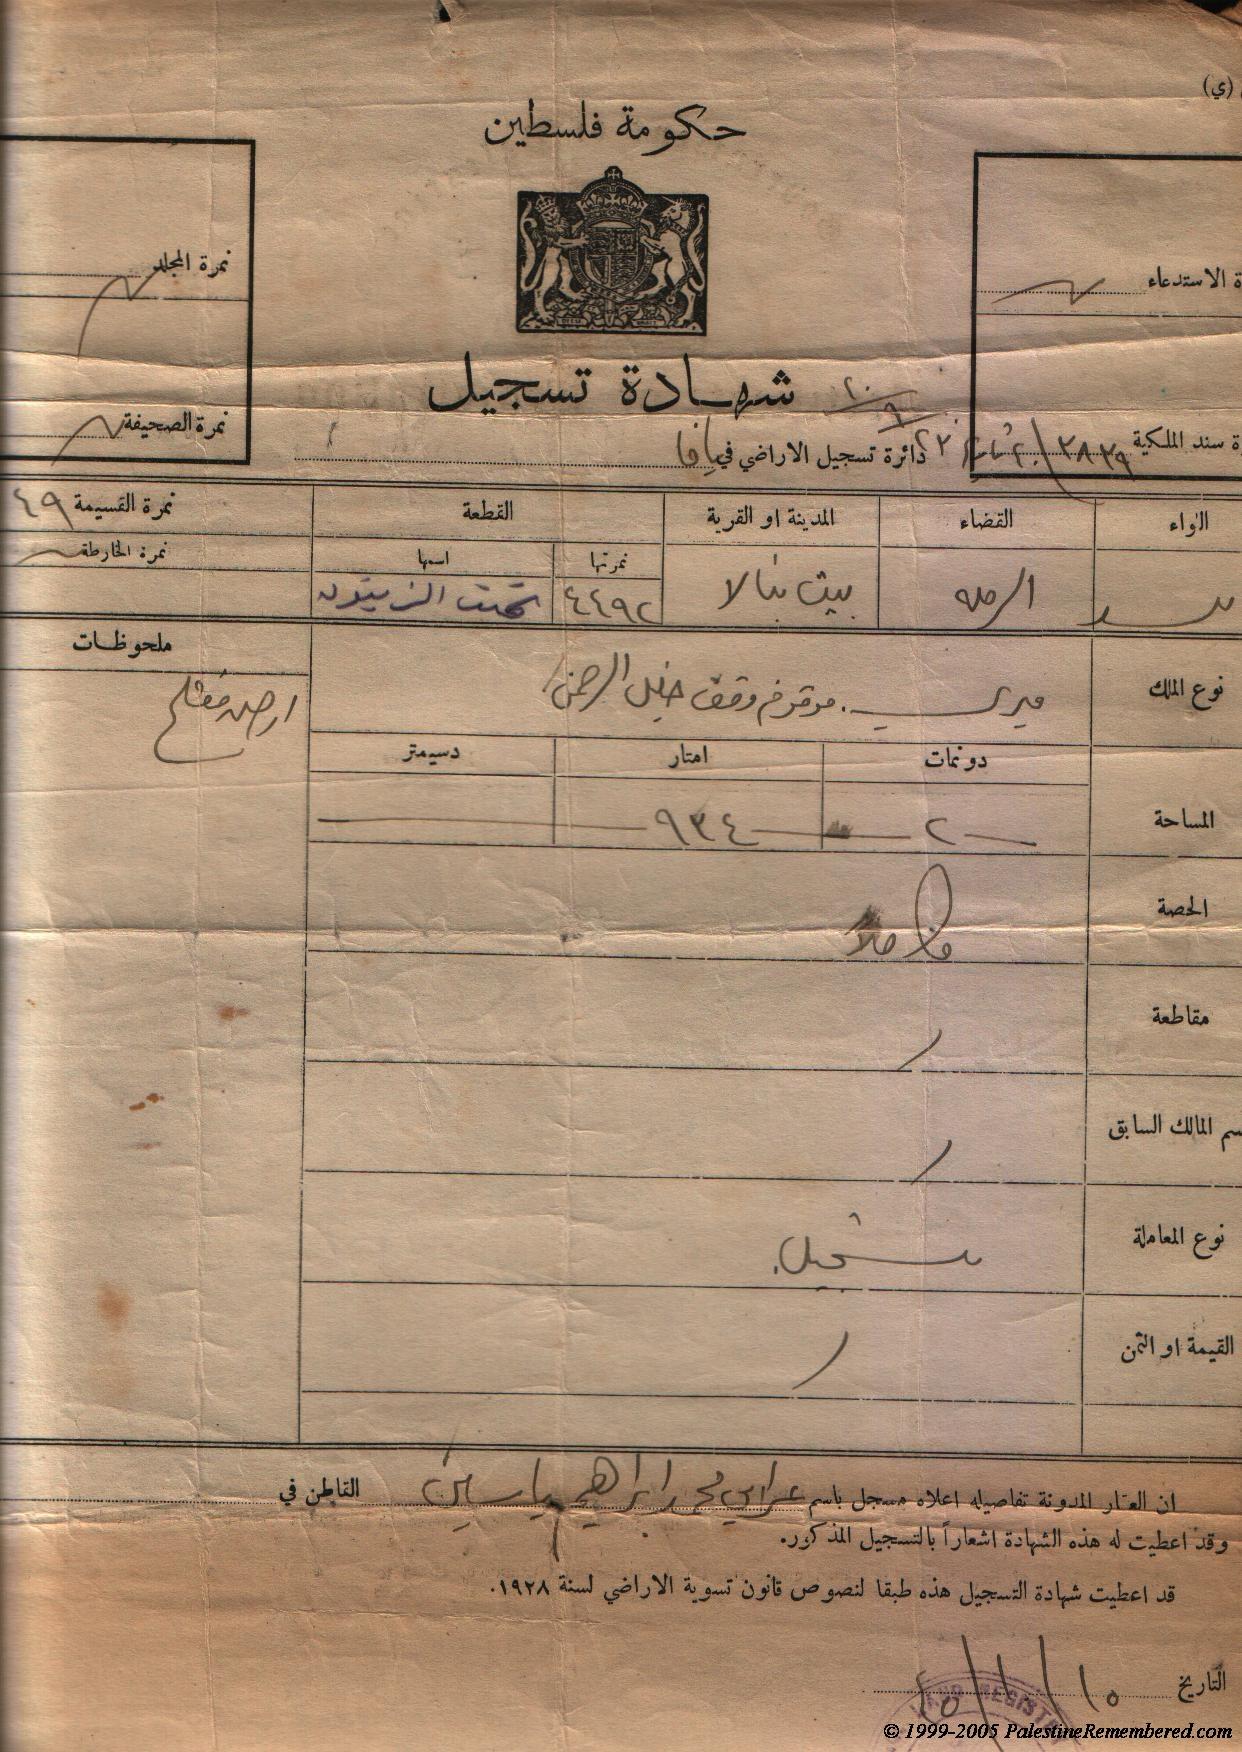 (ي)
حكومة فلسطين
نمرة المجلد
ة الاستدعاء
شهادة تسجيل
نمرة الصحيفة
ة سند الملكية ٣٨٣٩
دائرة تسجيل الاراضي في يافا
اللواء القضاء المدينة او القرية القطعة نمرة القسيمة ٤٩
نمرتها اسمها نمرة الخارطة
لد الرمله بيت نبالا ٤٤٩٢ تحت الزيتون
ملحوظات
نوع الملك ميري موقوفه وقف خليل الرحمن
ارض مفتلح
دونمات امتار دسيمتر
المساحة ٢ ٩٣٤
الحصة كاملا
مقاطعة
سم المالك السابق
نوع المعاملة تسجيل
القيمة او الثمن
ان العقار المدونة تفاصيله اعلاه مسجل باسم محمد ابراهيم ياسين القاطن في
وقد اعطيت له هذه الشهادة اشعاراً بالتسجيل المذكور.
قد اعطيت شهادة التسجيل هذه طبقا لنصوص قانون تسوية الاراضي لسنة ١٩٢٨.
التاريخ ١٥/١/٤٥
LAND REGISTRY
© 1999-2005 PalestineRemembered.com